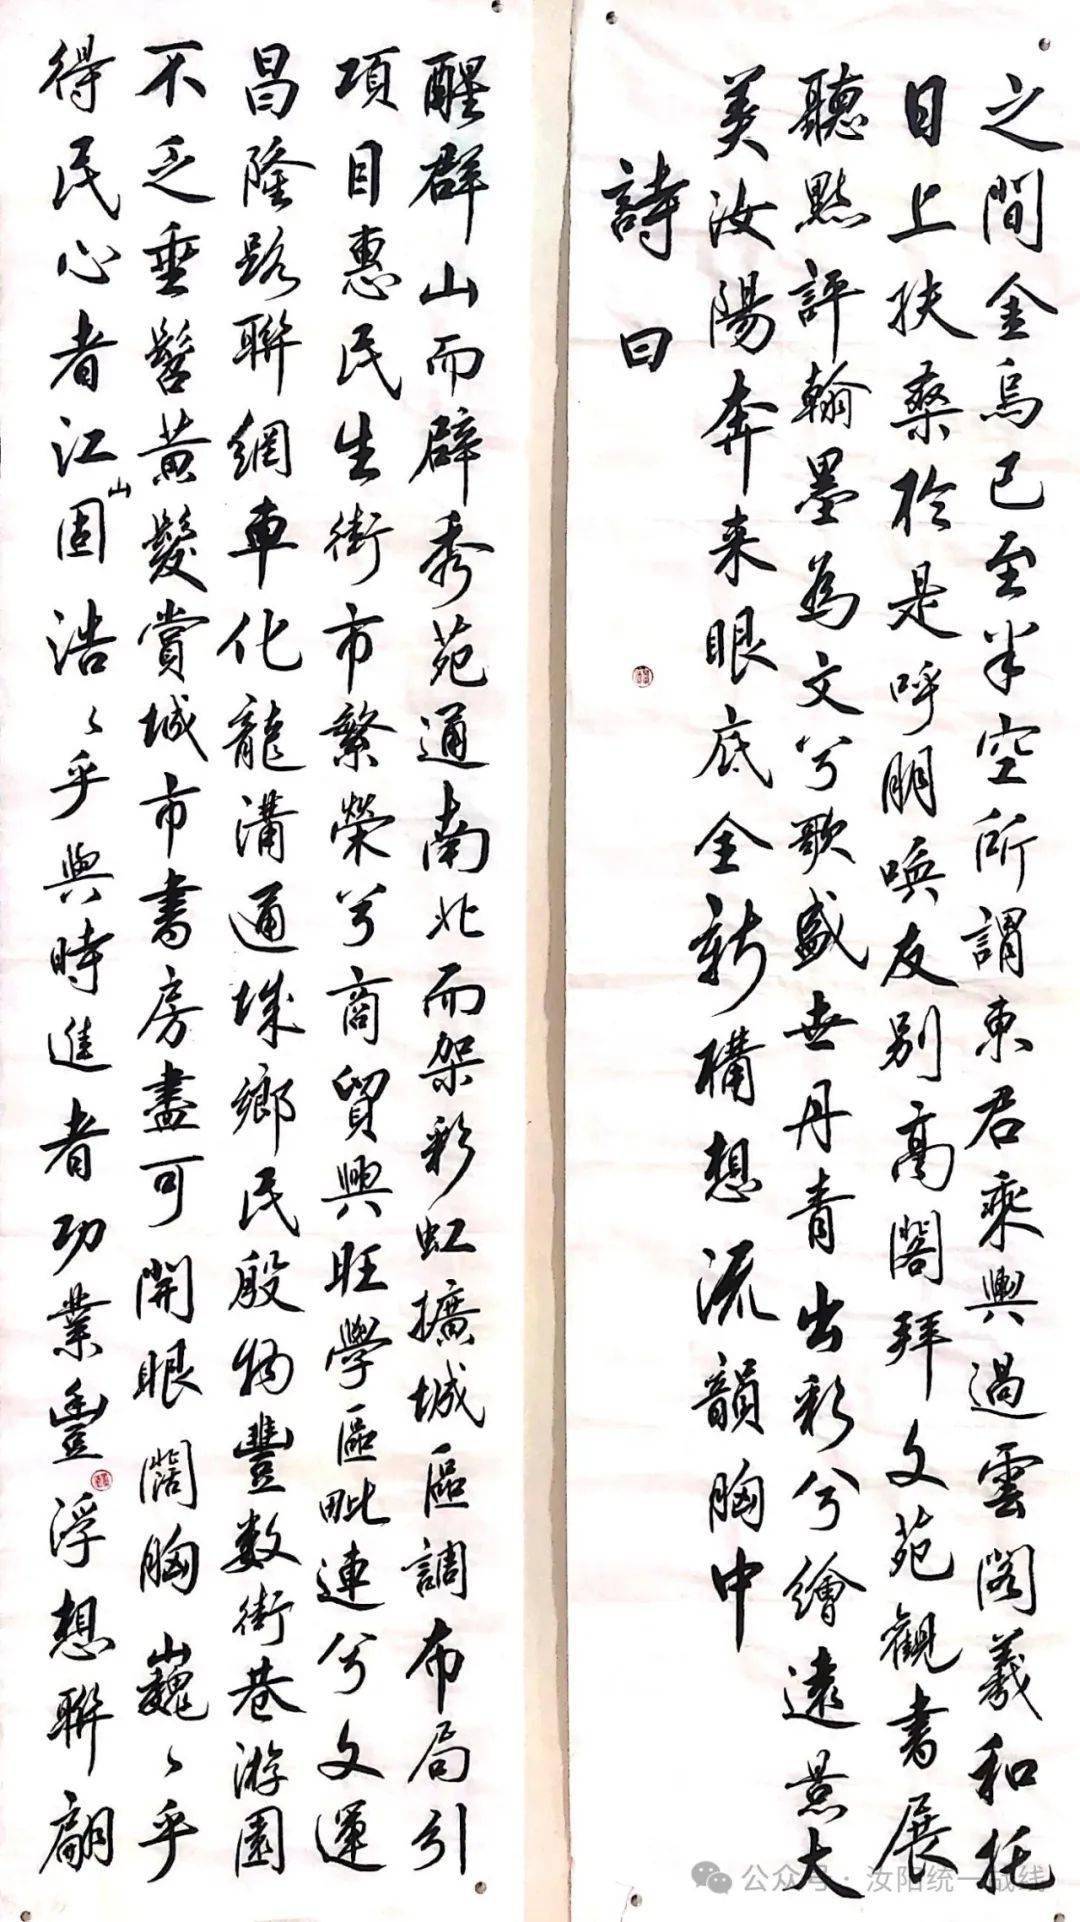 醒群山而辟秀苑通南北而架彩虹擴城區調布局引
項目惠民生街市繁榮兮商貿興旺學區毗連兮文運
昌隆路聯網車化龍溝通城鄉民殷物豐數街巷游園
不乏垂髫黃髮賞城市書房盡可開眼闊胸巍〻乎
得民心者江山固浩〻乎與時進者功業豐浮想聯翩
之間金烏已至半空所謂東君乘輿過雲閣羲和托
日上扶桑於是呼朋喚友別高閣拜文苑觀書展
聽點評翰墨為文兮歌盛世丹青出彩兮繪遠景大
美汝陽奔来眼底全新構想流韻胸中
詩曰
公众号·汝阳统一战线